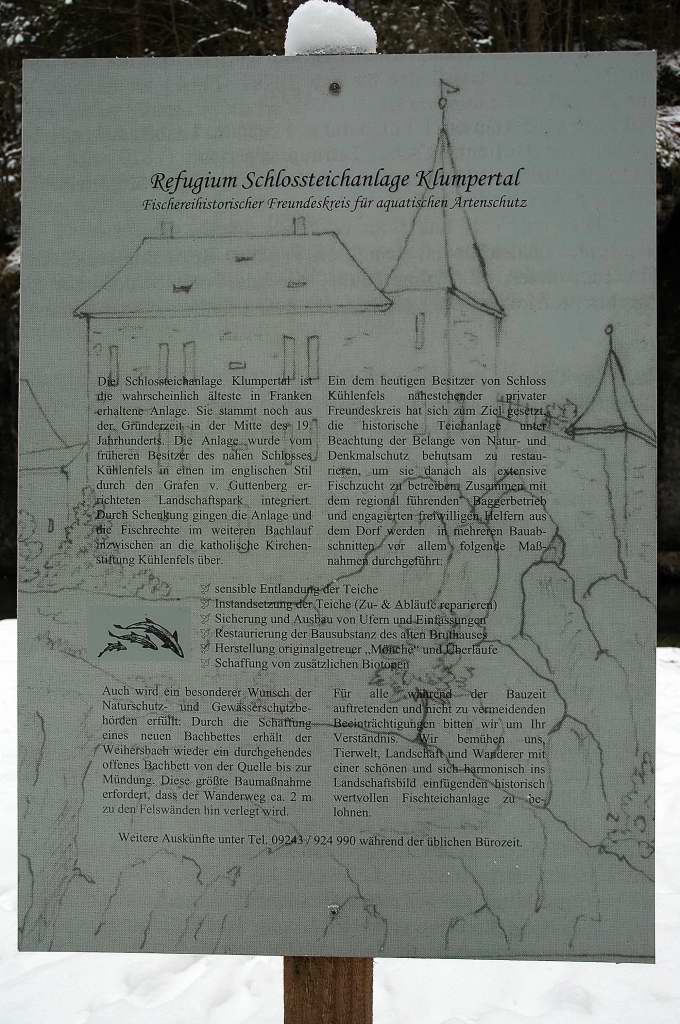 Refugium Schlossteichanlage Klumpertal
Fischereihistorischer Freundeskreis für aquatischen Artenschutz
Die Schlossteichanlage Klumpertal ist
die wahrscheinlich älteste in Franken
erhaltene Anlage. Sie stammt noch aus
der Gründerzeit in der Mitte des 19.
Jahrhunderts. Die Anlage wurde vom
früheren Besitzer des nahen Schlosses
Kühlenfels in einen im englischen Stil
durch den Grafen v. Guttenberg er-
richteten Landschaftspark integriert.
Durch Schenkung gingen die Anlage und
die Fischrechte im weiteren Bachlauf
inzwischen an die katholische Kirchen-
stiftung Kühlenfels über.
Ein dem heutigen Besitzer von Schloss
Kühlenfels nahestehender privater
Freundeskreis hat sich zum Ziel gesetzt,
die historische Teichanlage unter
Beachtung der Belange von Natur- und
Denkmalschutz behutsam zu restau-
rieren, um sie danach als extensive
Fischzucht zu betreiben. Zusammen mit
dem regional führenden Baggerbetrieb
und engagierten freiwilligen Helfern aus
dem Dorf werden in mehreren Bauab-
schnitten vor allem folgende Maß-
nahmen durchgeführt:
sensible Entlandung der Teiche
Instandsetzung der Teiche (Zu- & Abläufe reparieren)
Sicherung und Ausbau von Ufern und Einfassungen
Restaurierung der Bausubstanz des alten Bruthauses
Herstellung originalgetreuer „Mönche" und Überläufe
Schaffung von zusätzlichen Biotopen
Auch wird ein besonderer Wunsch der
Naturschutz- und Gewässerschutzbe-
hörden erfüllt: Durch die Schaffung
eines neuen Bachbettes erhält der
Weihersbach wieder ein durchgehendes
offenes Bachbett von der Quelle bis zur
Mündung. Diese größte Baumaßnahme
erfordert, dass der Wanderweg ca. 2 m
zu den Felswänden hin verlegt wird.
Für alle während der Bauzeit
auftretenden und nicht zu vermeidenden
Beeinträchtigungen bitten wir um Ihr
Verständnis. Wir bemühen uns,
Tierwelt, Landschaft und Wanderer mit
einer schönen und sich harmonisch ins
Landschaftsbild einfügenden historisch
wertvollen Fischteichanlage zu be-
lohnen.
Weitere Auskünfte unter Tel. 09243 / 924 990 während der üblichen Bürozeit.